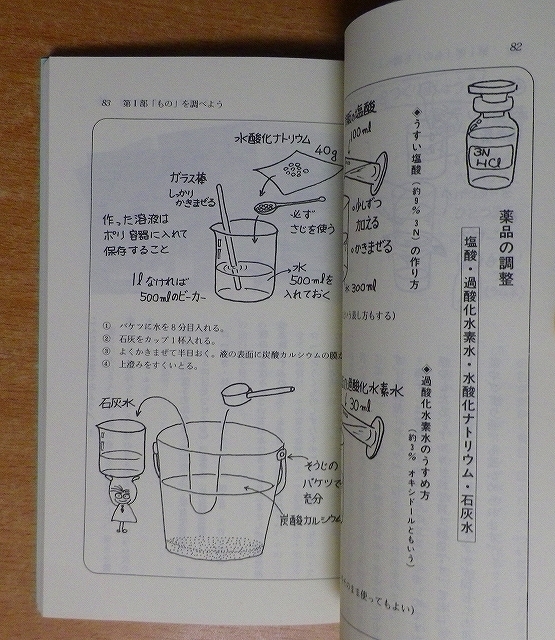 82
薬品の調整
塩酸・過酸化水素水・水酸化ナトリウム・石灰水
3N
HCl
◆うすい塩酸(約9% 3N)の作り方
塩酸
100ml
少しずつ
加える
かきまぜる
300ml
も可する)
◆過酸化水素水のうすめ方
(約3% オキシドールともいう)
酸化水素水
30ml
まま使ってもよい)
83 第Ⅰ部「もの」を調べよう
水酸化ナトリウム
40g
ガラス棒
しっかり
かきまぜる
必ず
さじを使う
作った溶液は
ポリ容器に入れて
保存すること
水
500mlを
入れておく
1lなければ
500mlのビーカー
① バケツに水を8分目入れる。
② 石灰をカップ1杯入れる。
③ よくかきまぜて半日おく。液の表面に炭酸カルシウムの膜が
④ 上澄みをすくいとる。
石灰水
そうじの
バケツで
充分
炭酸カルシウム